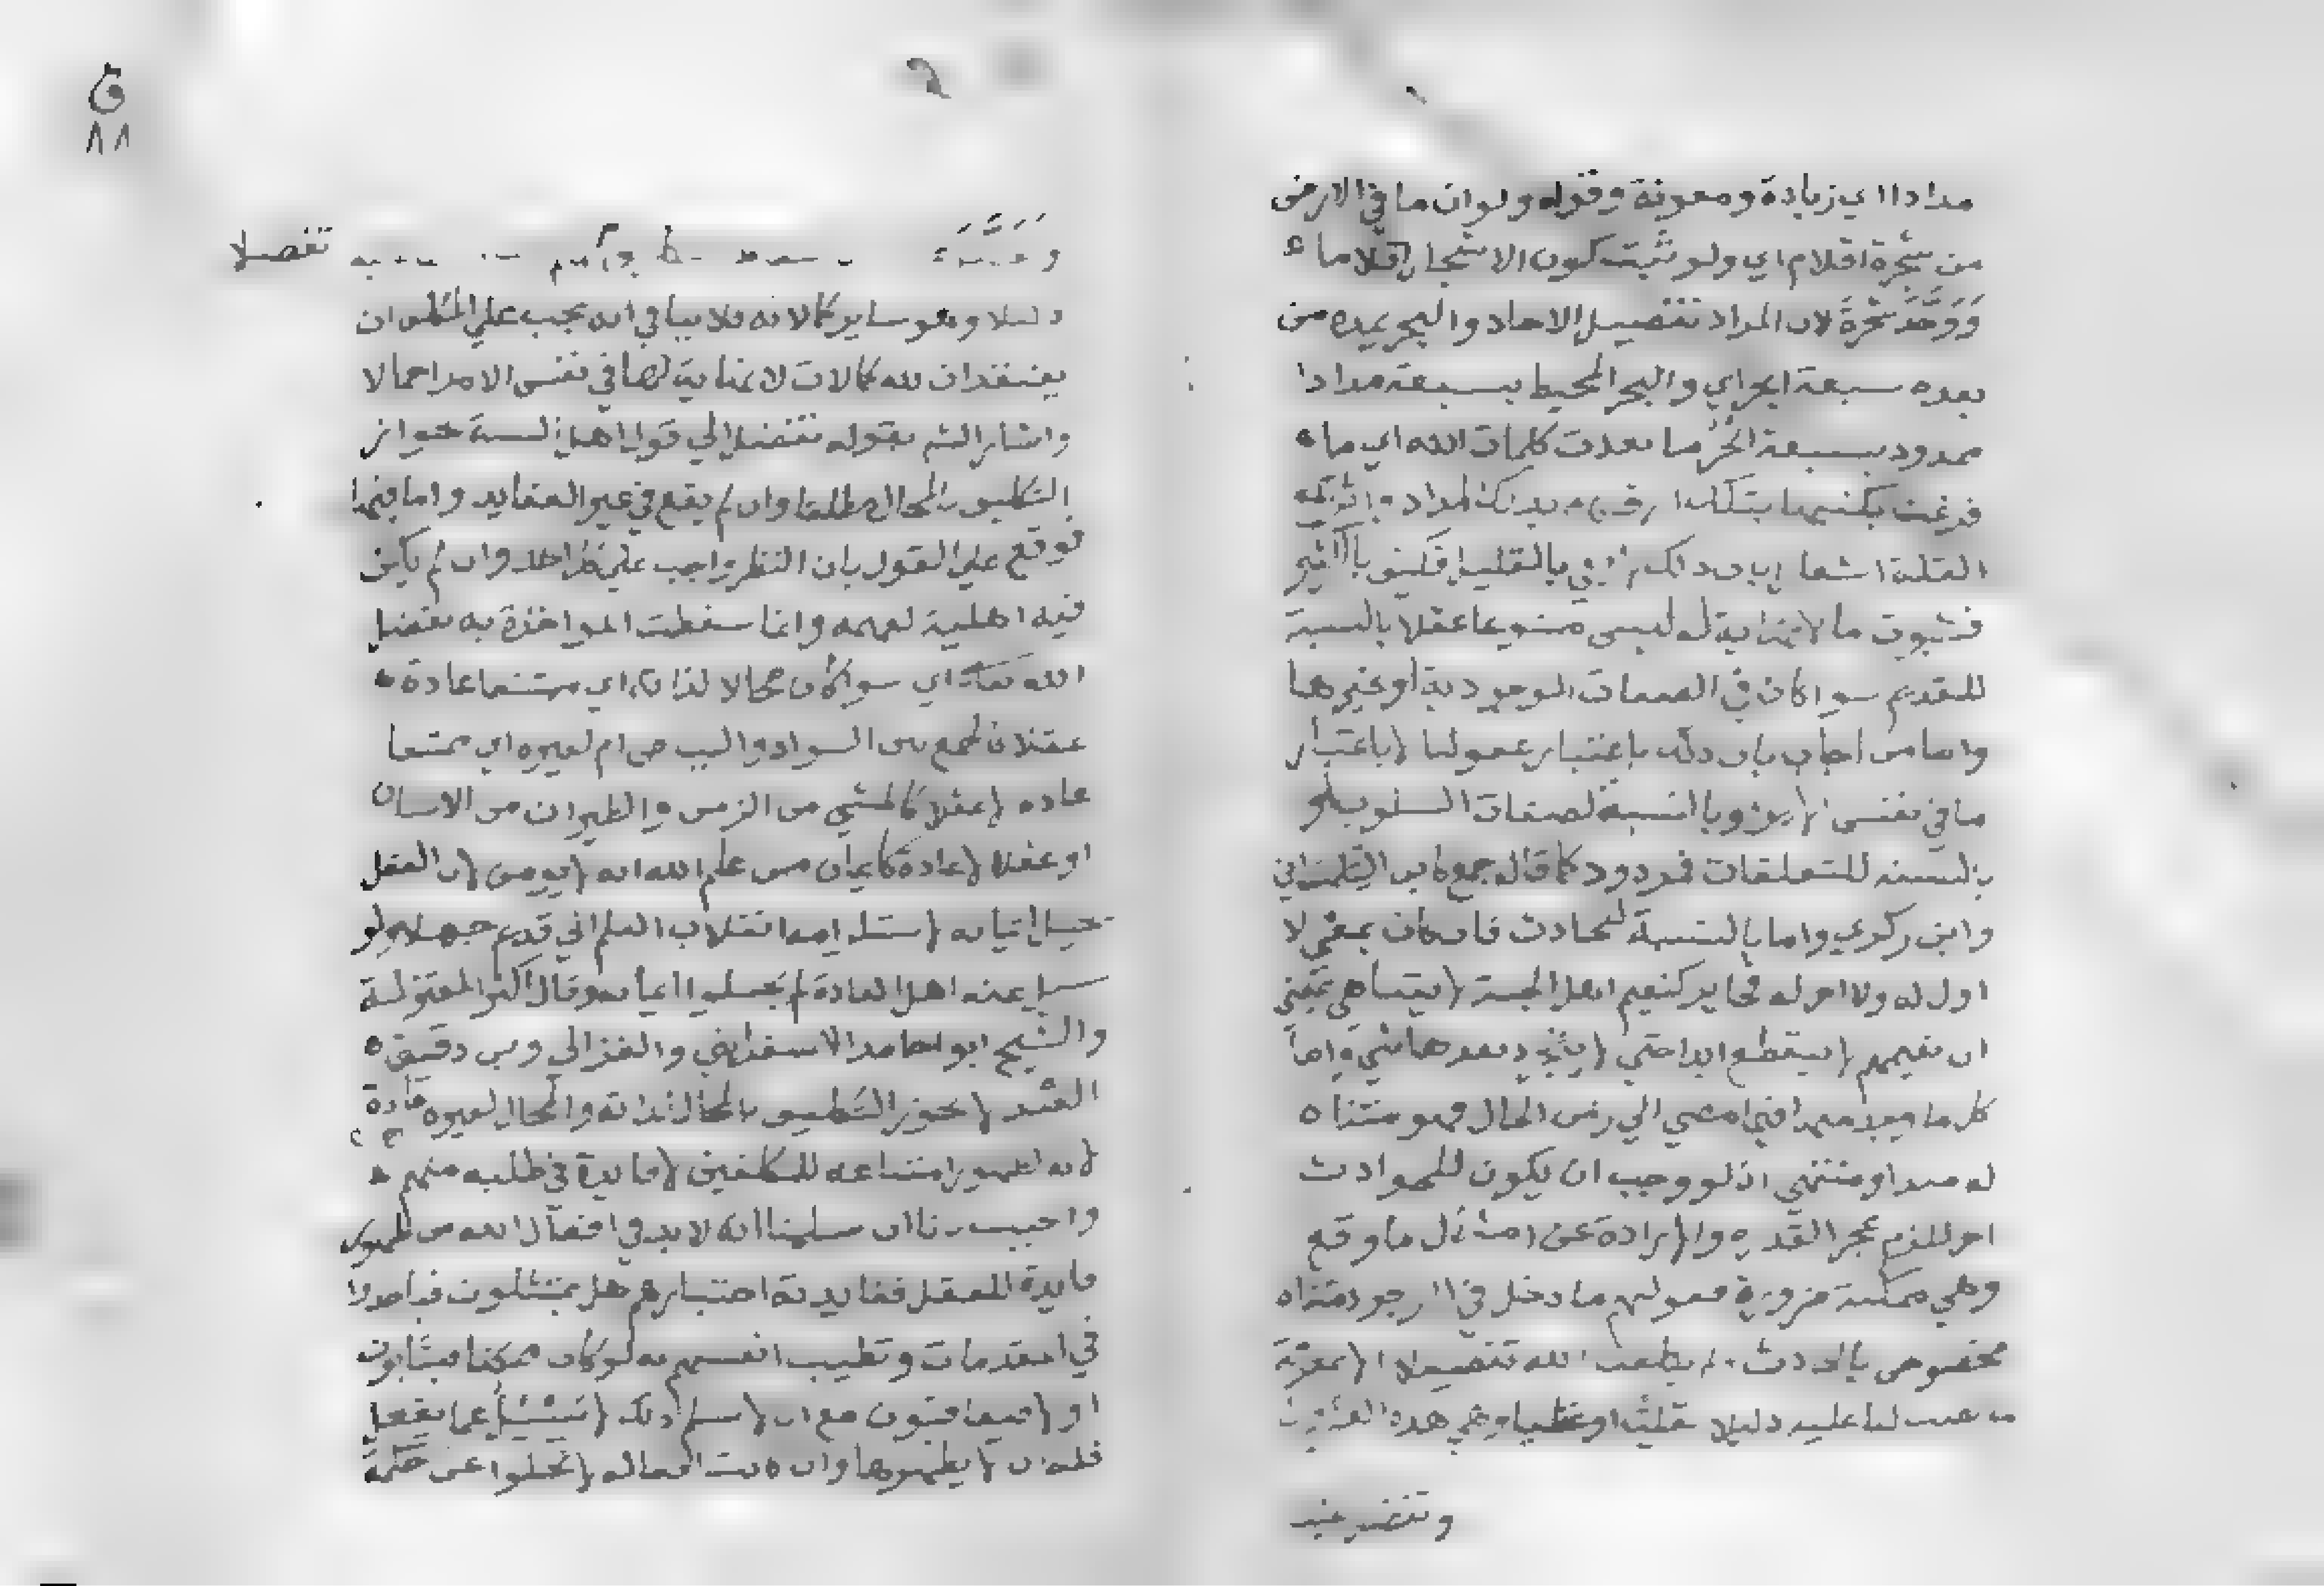 مدادا اي زيادة ومعونة وقوله ولوان ما في الارض
من شجرة اقلام اي ولو ثبت كون الاشجار اقلاما
وَوَحَّدَ شجرةً لان المراد تفصيل الاحاد والبحر يمده من
بعده سبعة ابحر اي والبحر المحيط بسبعة مدادا
ممدود بسبعة ابحر ما نفدت كلمات الله اي ما
فرغت بكتبها بتلك الاقلام بذلك المداد واثر جمع
القلة اشعارا بان ذلك لا يفي بالقليل فكيف بالكثير
فثبوت ما لا نهاية له ليس ممنوعا عقلا بالنسبة
للقديم سوا كان في الصفات الوجودية او غيرها
واما من اجاب بان ذلك باعتبار عقولنا لا باعتبار
ما في نفس الامر او بالنسبة لصفات السلوب او
بالنسبة للتعلقات فمردود كما قال جمع كابن التلمساني
وابن زكري واما بالنسبة للحادث فان كان بمعني لا
اول له ولا اخر له فجايز كنعيم اهل الجنة لا يتناهي بمعني
ان نعيمهم لا ينقطع ابدا حتي لا يتجدد بعدها شي واما
كل ما وجد منها فيما مضي الي زمن الحال فهو متناه
له مبدا ومنتهي اذ لو وجب ان يكون للحوادث
اخر للزم عجز القدرة والارادة عن امثال ما وقع
وهي ممكنة ضرورة فقولهم ما دخل في الوجود متناه
مخصوص بالحادث ولم يكلفنا الله تفصيلا الا بمعرفة
ما نصب لنا عليه دليلا عقليا او نقليا وهي هذه العشرون
وتفضل علينا
تفصيلا
دليلا وهو ساير كمالاته فلا ينافي انه يجب علي المكلف ان
يعتقد ان لله كمالات لا نهاية لها في نفس الامر اجمالا
واشار الشم بقوله بتفضل الي قول اهل السنة بجواز
التكليف بالمحال مطلقا وان لم يقع في غير العقايد واما فيها
فوقع علي القول بان النظر واجب علي كل احد وان لم يكن
فيه اهلية لفهمه وانما سقطت المواخذة به بفضل
الله تعالي اي سوا كان محالا لذاته اي ممتنعا عادة
عقلا كالجمع بين السواد والبياض ام لغيره اي ممتنعا
عادة لا عقلا كالمشي من الزمن والطيران من الانسان
او عقلا لا عادة كايمان من علم الله انه لا يومن لان العقل
يحيل ايمانه لاستلزامه انقلاب العلم القديم جهلا ولو
سيل عنه اهل العادة لم يحيلوا ايمانه وقال اكثر المعتزلة
والشيخ ابو حامد الاسفرايني والغزالي وابن دقيق
العيد لا يجوز التكليف بالمحال لذاته والمحال لغيره عادة
لانه لظهور امتناعه للمكلفين لا فايدة في طلبه منهم
واجيب بانا ان سلمنا انه لا بد في افعال الله من ظهور
فايدة للعقل ففايدته اختبارهم هل يمتثلون فياخذوا
في المقدمات وتطيب انفسهم به لو كان ممكنا فيثابون
او لا فيعاقبون مع ان لا نسلم ذلك لا يُسْئَلُ عما يفعل
فله ان لا يظهرها وان كانت افعاله لا تخلوا عن حكمة